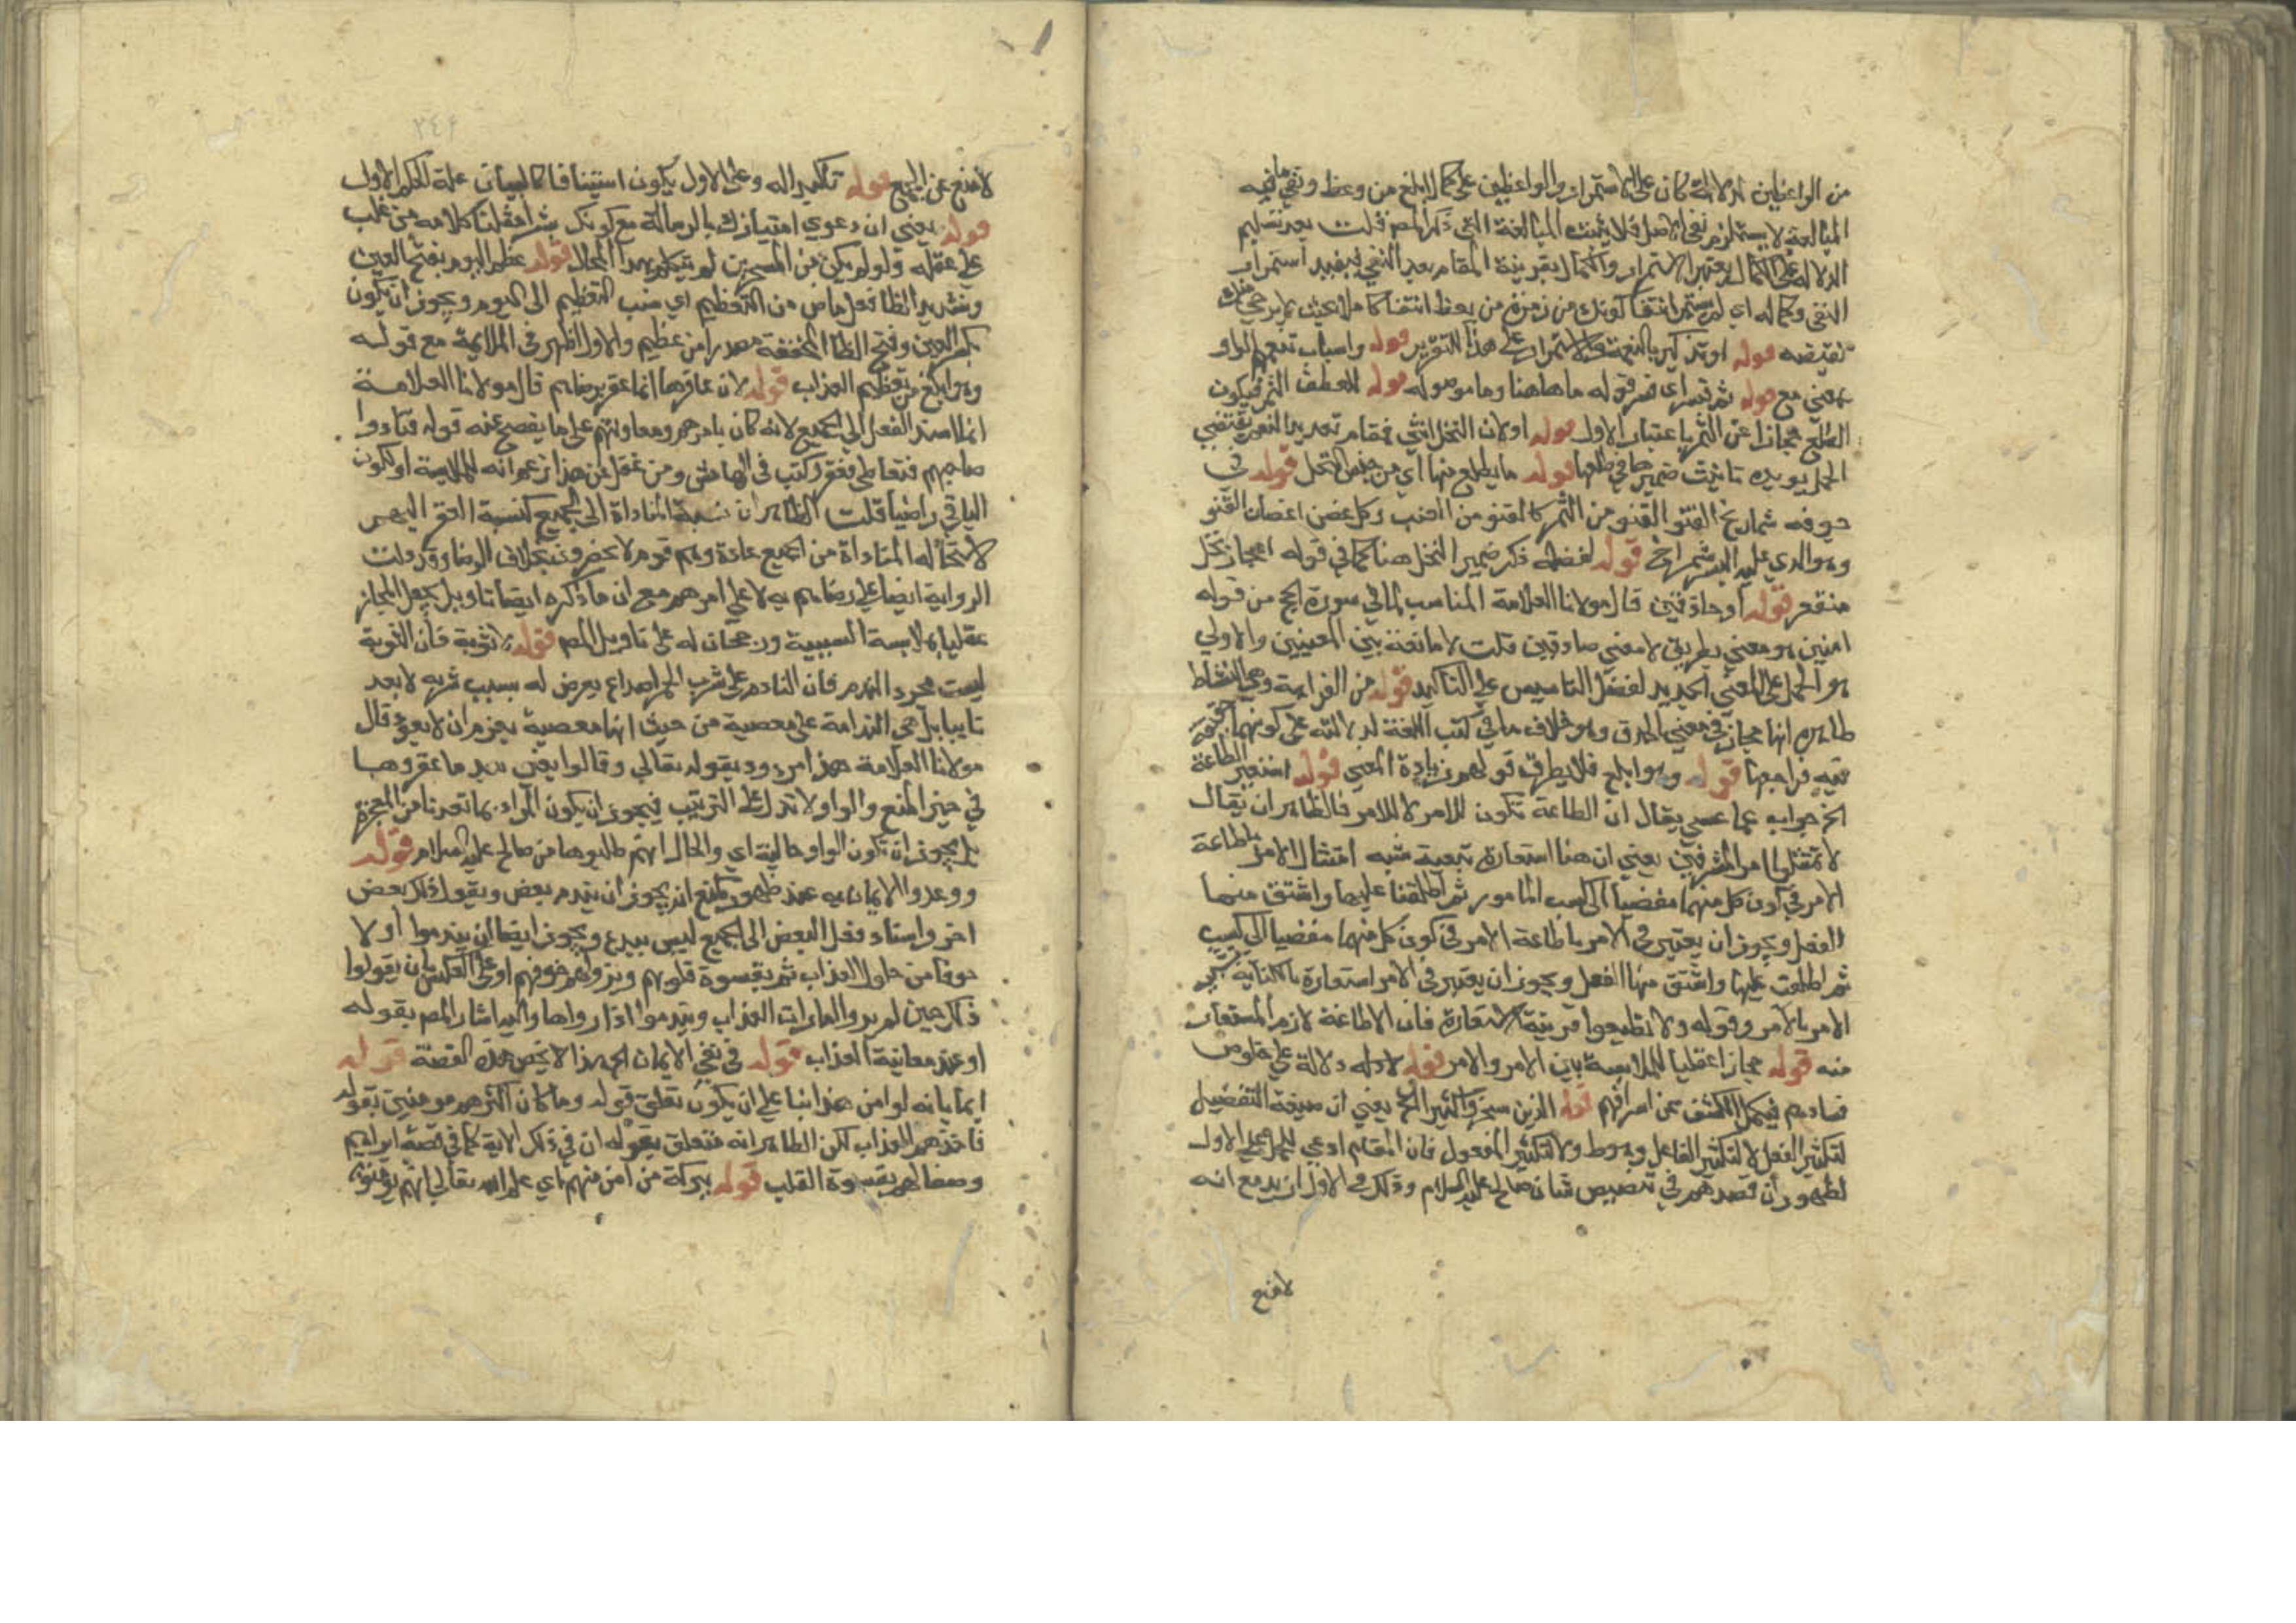 من الواعظين لدلالة كان على الاستمرار والواعظين على كمال ابلغ من وعظ ونفي ما فيه
المبالغة لا يستلزم نفي الاصل فلا يثبت المبالغة التي ذكرها المص قلت بعد تسليم
الدلالة على الكمال يعتبر الاستمرار والكمال بقرينة المقام بعد النفي فيفيد استمرار
النفي وكماله اي لم يستمر انتفا كونك من زمرة من يعظ انتفا كاملا بحيث لا يرجى منك
نقيضه قوله او تذكير بالنعمة على هذا التقرير قوله واسباب تنعمهم الواو
بمعنى مع قوله ثم فسر اي فسر قوله ما هاهنا وما موصوله قوله للطف الثمر فيكون
الطلع مجازا عن الثمر باعتبار الاول قوله اولان النخل انثى فمقام تعديد النعم يقتضي
الحمل يويده تانيث ضميرها في طلعها قوله ما يطلع منها اي من جنس النخل قوله في
جوفه شماريخ القنو القنو من الثمر كالقنو من العنب وكل غصن من اغصان القنو
وهو الذي عليه البسر شمراخ قوله لفظه ذكر ضمير النخل هنا كما في قوله اعجاز نخل
منقعر قوله او حاذقين قال مولانا العلامة المناسب لما في سورة الحجر من قوله
امنين هو معنى بطرين لا معنى حاذقين قلت لا مانعة بين المعنيين والاولى
هو الحمل على المعنى الجديد لفضل التاسيس على التاكيد قوله من الفراهة وهي النشاط
ظاهره انها مجاز في معنى الحذق وهو خلاف ما في كتب اللغة لدلالته على كونها حقيقة
فيه فراجعها قوله وهو ابلغ فلا يطرق قولهم زيادة المعنى قوله استعير الطاعة
الخ جواب عما عسى يقال ان الطاعة تكون للامر لا للامر فالظاهر ان يقال
لا تمتثلوا امر المسرفين يعني ان هنا استعارة تبعية شبه امتثال الامر باطاعة
الامر في كون كل منهما مفضيا الى كسب المامور ثم اطلقنا عليها واشتق منها
الفعل ويجوز ان يعتبر في الامر باطاعة الامر في كون كل منهما مفضيا الى كسب
ثم اطلقت عليها واشتق منها الفعل ويجوز ان يعتبر في الامر استعارة بالكناية
الامر بالامر وقوله ولا تطيعوا قرينة الاستعارة فان الاطاعة لازم المستعار
منه قوله مجازا عقليا للملابسة بين الامر والامر قوله لادله دلالة على خلوص
فسادهم فيكمل الكشف عن اسرافهم قوله الذين سحروا كثيرا الخ يعني ان صيغة التفعيل
لتكثير الفعل لا لتكثير الفاعل وهو ط ولا لتكثير المفعول فان المقام ادعى للحمل على الاول
لظهور ان قصدهم في تنصيص شان صالح عليه السلام وذلك في الاول ازيد مع انه
لا منع
لا منع عن الجمع قوله تكسير اله وعلى الاول يكون استينافا كالبيان علة للحكم الاول
قوله يعني ان دعوى امتيازك بالرسالة مع كونك بشرا مثلنا كلام من غلب
على عقله ولو لم يكن من المسحرين لم يتكلم بهذا المحال قوله عظم اليوم بفتح العين
وتشديد الظا فعل ماض من التعظيم اي نسب التعظيم الى اليوم ويجوز ان يكون
بكسر العين وفتح الظا المخففة مصدرا من عظيم والاول اظهر في الملايمة مع قوله
وهو ابلغ من تعظيم العذاب قوله لان عاقرها انما عقر برضاهم قال مولانا العلامة
انما اسند الفعل الى الجميع لانه كان بامرهم ومعاونتهم على ما يفصح عنه قوله فنادوا
صاحبهم فتعاطى فعقر وكتب في الهامش ومن غفل عن هذا زعم انه للملابسة او لكون
الباقي راضيا قلت الظاهر ان نسبة المناداة الى الجميع كنسبة العقر اليهم
لاستحاله المناداة من الجميع عادة وهم قوم لا يحضرون بخلاف الرضا وقد دلت
الرواية ايضا على رضاهم به لا على امرهم مع ان ما ذكره ايضا تاويل بجعل المجاز
عقليا بملابسة السببية ورجحان له على تاويل المص قوله لا توبة فان التوبة
ليست مجرد الندم فان النادم على شرب الخمر لصداع يعرض له بسبب شربه لا يعد
تايبا بل هي الندامة على معصية من حيث انها معصية بعزم ان لا يعود قال
مولانا العلامة هذا مردود بقوله تعالى وقالوا يعني بعد ما عقروها
في حيز المنع والواو لا تدل على الترتيب فيجوز ان يكون المراد بما تعدنا من المعجزة
بل يجوز ان تكون الواو حالية اي والحال انهم طلبوها من صالح عليه السلام قوله
ووعدوا الايمان به عند ظهوره مع انه يجوز ان يندم بعض ويقول ذلك بعض
اخر واسناد فعل البعض الى الجميع ليس ببدع ويجوز ايضا ان يندموا اولا
خوفا من حلول العذاب ثم بقسوة قلوبهم ويزول خوفهم او على العكس بان يقولوا
ذلك حين لم يروا امارات العذاب ويندموا اذا رواها واليه اشار المص بقوله
او عند معاينة العذاب قوله في نفي الايمان الخ هذا لا يخص هذه القصة قوله
ايما بانه لو امن هذا بنا على ان يكون تعلق قوله وما كان اكثرهم مومنين بقوله
فاخذهم العذاب لكن الظاهر انه متعلق بقوله ان في ذلك لاية كما في قصة ابراهيم
وصفا لهم بقسوة القلب قوله ببركة من امن منهم اي علم الله تعالى انهم يومنون